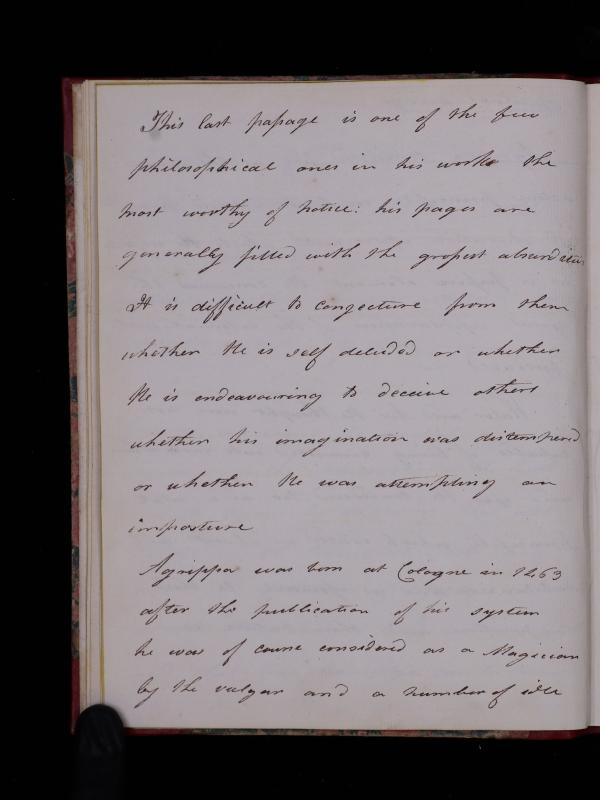 This last passage is one of the few
philosophical ones in his works the
most worthy of notice: his pages are
generally filled with the grossest absurdities
It is difficult to congecture from them
whether he is self deluded or whether
he is endeavouring to deceive others
whether his imagination was distempered
or whether he was attempting an
imposture
Agrippa was born at Cologne in 1463
after the publication of his system
he was of course considered as a Magician
by the vulgar and a number of idle